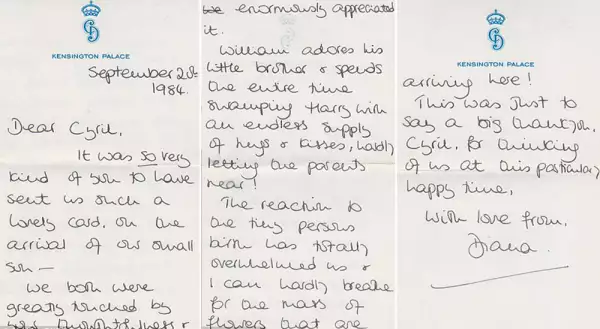 KENSINGTON PALACE
September 20th
1984.
Dear Cyril,
It was so very
kind of you to have
sent us such a
lovely card, on the
arrival of our small
son —
We both were
greatly touched by
your thoughtfulness &
we enormously appreciated
it.
William adores his
little brother & spends
the entire time
swamping Harry with
an endless supply
of hugs & kisses, hardly
letting the parents
near!
The reaction to
one tiny persons
birth has totally
overwhelmed us &
I can hardly breathe
for the mass of
flowers that are
KENSINGTON PALACE
arriving here!
This was just to
say a big thankyou,
Cyril, for thinking
of us at this particularly
happy time,
With love from,
Diana.